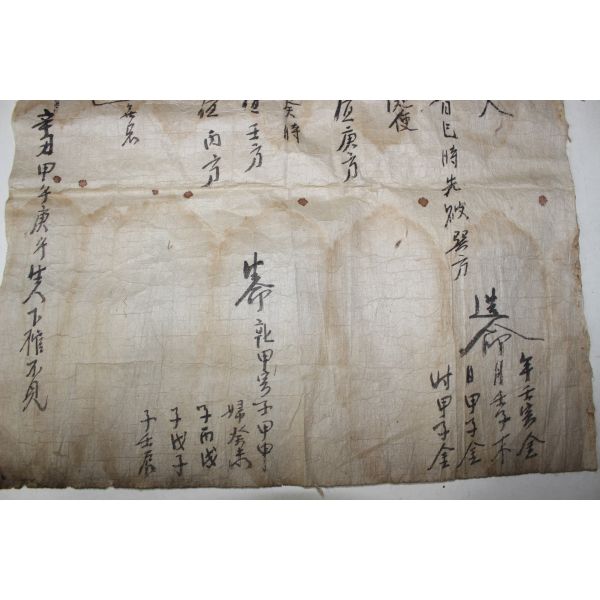 人
造命
年壬寅金
月壬子木
日甲子金
時甲子金
巳時先破巽方
庚方
癸時
壬方
丙方
生命
乾甲寅子甲申
婦癸未
子丙戌
子戊子
子壬辰
辛丑甲午庚午生人下棺不見